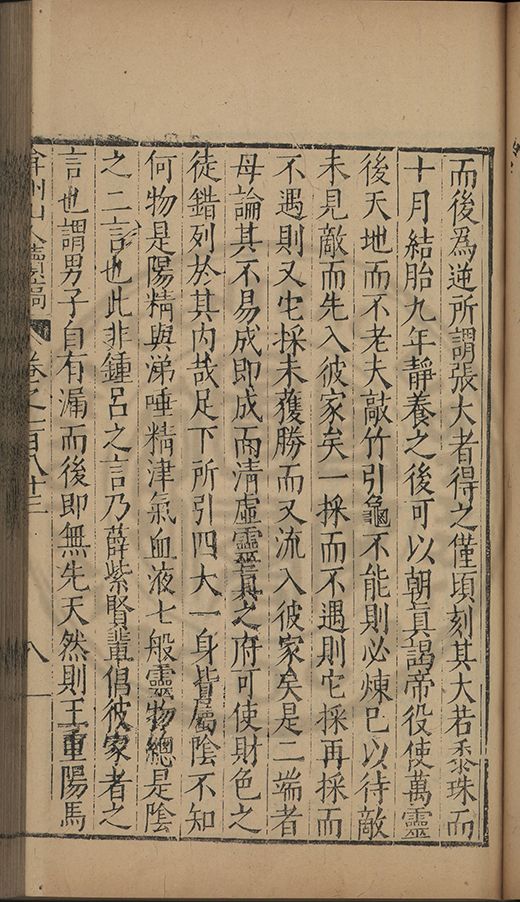 而後為逆所謂張大者得之僅頃刻其大若黍珠而
十月結胎九年靜養之後可以朝真謁帝役使萬靈
後天地而不老夫敲竹引龜不能則必煉己以待敵
未見敵而先入彼家矣一採而不遇則它採再採而
不遇則又它採未獲勝而又流入彼家矣是二端者
母論其不易成即成而清虛靈真之府可使財色之
徒錯列於其内哉足下所引四大一身皆屬陰不知
何物是陽精與涕唾精津氣血液七般靈物總是陰
之二言也此非鍾呂之言乃薛紫賢輩倡彼家者之
言也謂男子自有漏而後即無先天然則王重陽馬
弇州山人續稿 卷之一百八十三 八